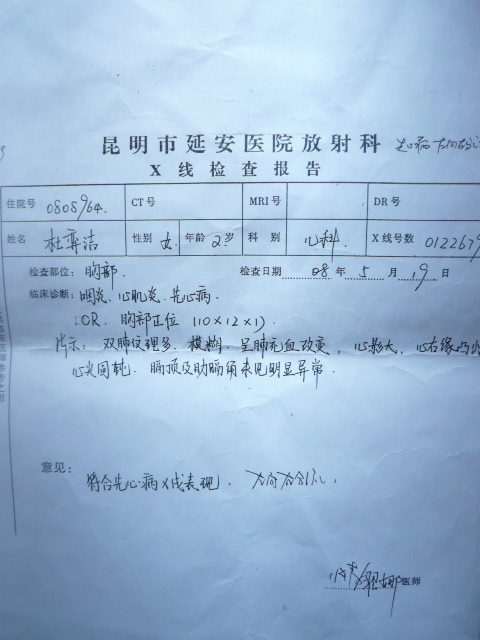 昆明市延安医院放射科
X 线 检 查 报 告
住院号 0808964. CT号 MRI号 DR号
姓名 杜弈洁 性别 女. 年龄 2岁 科别 心科. X线号数 012267
检查部位: 胸部. 检查日期 08 年 5 月 19 日
临床诊断: 咽炎、心肌炎、先心病.
CR. 胸部正位 (10×12×1)
片示: 双肺纹理多、模糊. 呈肺充血改变, 心影大, 心右缘凸
心尖圆钝. 膈顶及肋膈角未见明显异常.
意见:
符合先心病X线表现.
医师